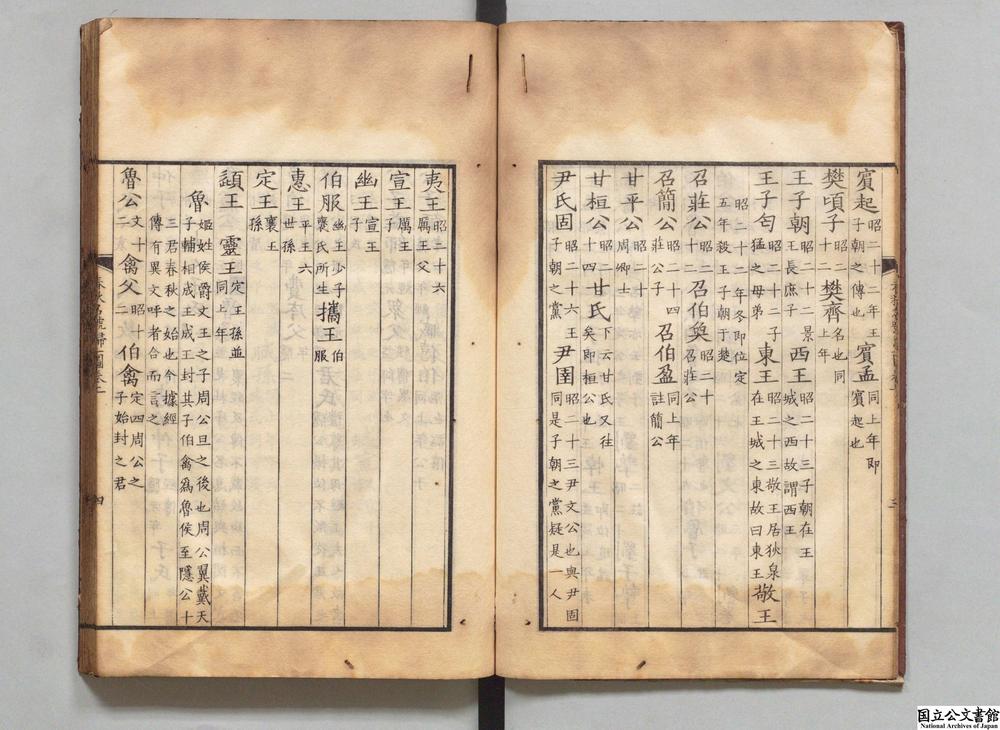 賓起昭二十二年王子朝之傳也賓孟同上年即賓起也
樊頃子昭二十二樊齊名也同上年
王子朝昭二十二景王長庶子西王昭二十三子朝在王城之西故謂西王
王子匄昭二十二子猛之母弟東王昭二十三敬王居狄泉在王城之東故曰東王敬王
昭二十二年冬即位定五年殺王子朝于楚
召莊公昭二十二召伯奐昭二十召莊公
召簡公昭二十四莊公子召伯盈同上年註簡公
甘平公昭二十周卿士
甘桓公昭二十四甘氏下云甘氏又往矣即桓公也
尹氏固昭二十六王子朝之黨尹圉昭二十三尹文公也與尹固同是子朝之黨疑是一人
三
夷王昭二十六厲王父
宣王厲王子
幽王宣王子
伯服幽王少子褒氏所生攜王伯服
惠王平王六世孫
定王襄王孫
頴王靈王定王孫並同上年
魯姬姓侯爵文王之子周公旦之後也周公翼戴天子輔相成王成王封其子伯禽爲魯侯至隱公十
三君春秋之始也今據經傳有異文呼者合而言之
魯公文十二禽父昭十二伯禽定四周公之子始封之君
春秋名號歸一圖卷
四
国立公文書館
National Archives of Japan